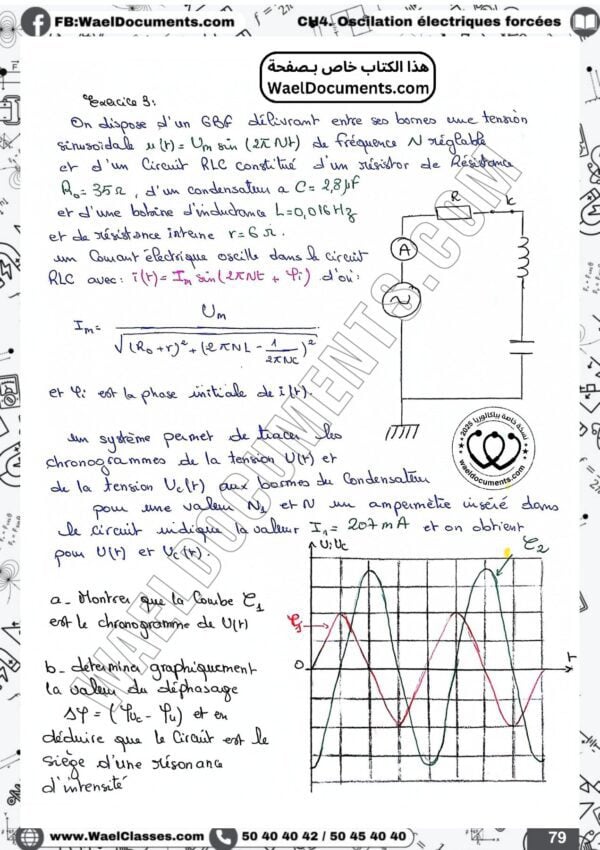 FB:WaelDocuments.com
CH4. Oscilation électriques forcées
هذا الكتاب خاص بـصفحة
WaelDocuments.com
Exercice 3:
On dispose d'un GBF délivrant entre ses bornes une tension
sinusoidale u(t) = Um sin (2πNt) de fréquence N réglable
et d'un Circuit RLC constitué d'un résistor de Résistance
R₀ = 35Ω, d'un condensateur a C = 2,8μF
et d'une bobine d'inductance L = 0,016 Hz
et de résistance interne r = 6 Ω.
un Courant électrique oscille dans le circuit
RLC avec: i(t) = Im sin(2πNt + φi) d'où:
Im = Um / √((R₀ + r)² + (2πNL - 1/2πNC)²)
et φi est la phase initiale de i(t).
R
K
A
un système permet de tracer les
chronogrammes de la tension U(t) et
de la tension Uc(t) aux bornes du Condensateur
pour une valeur N₁ et N un ampermètre inséré dans
le circuit indique la valeur I₁ = 207 mA et on obtient
pour U(t) et Uc(t).
نسخة خاصة بباكالوريا 2025
waeldocuments.com
U; Uc
C2
C1
O
t
a_ Montrer que la Courbe C1
est le chronogramme de U(t)
b_ determiner graphiquement
la valeur du déphasage
Δφ = (φuc - φu) et en
déduire que le Circuit est le
siège d'une résonance
d'intensité
WAELDOCUMENTS.COM
www.WaelClasses.com
50 40 40 42 / 50 45 40 40
79